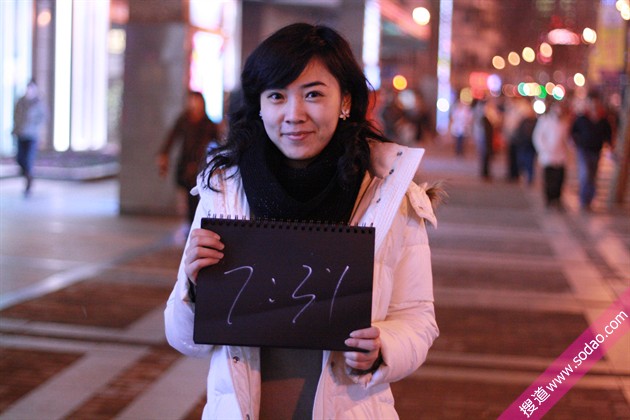 7:31
搜道 www.sodao.com